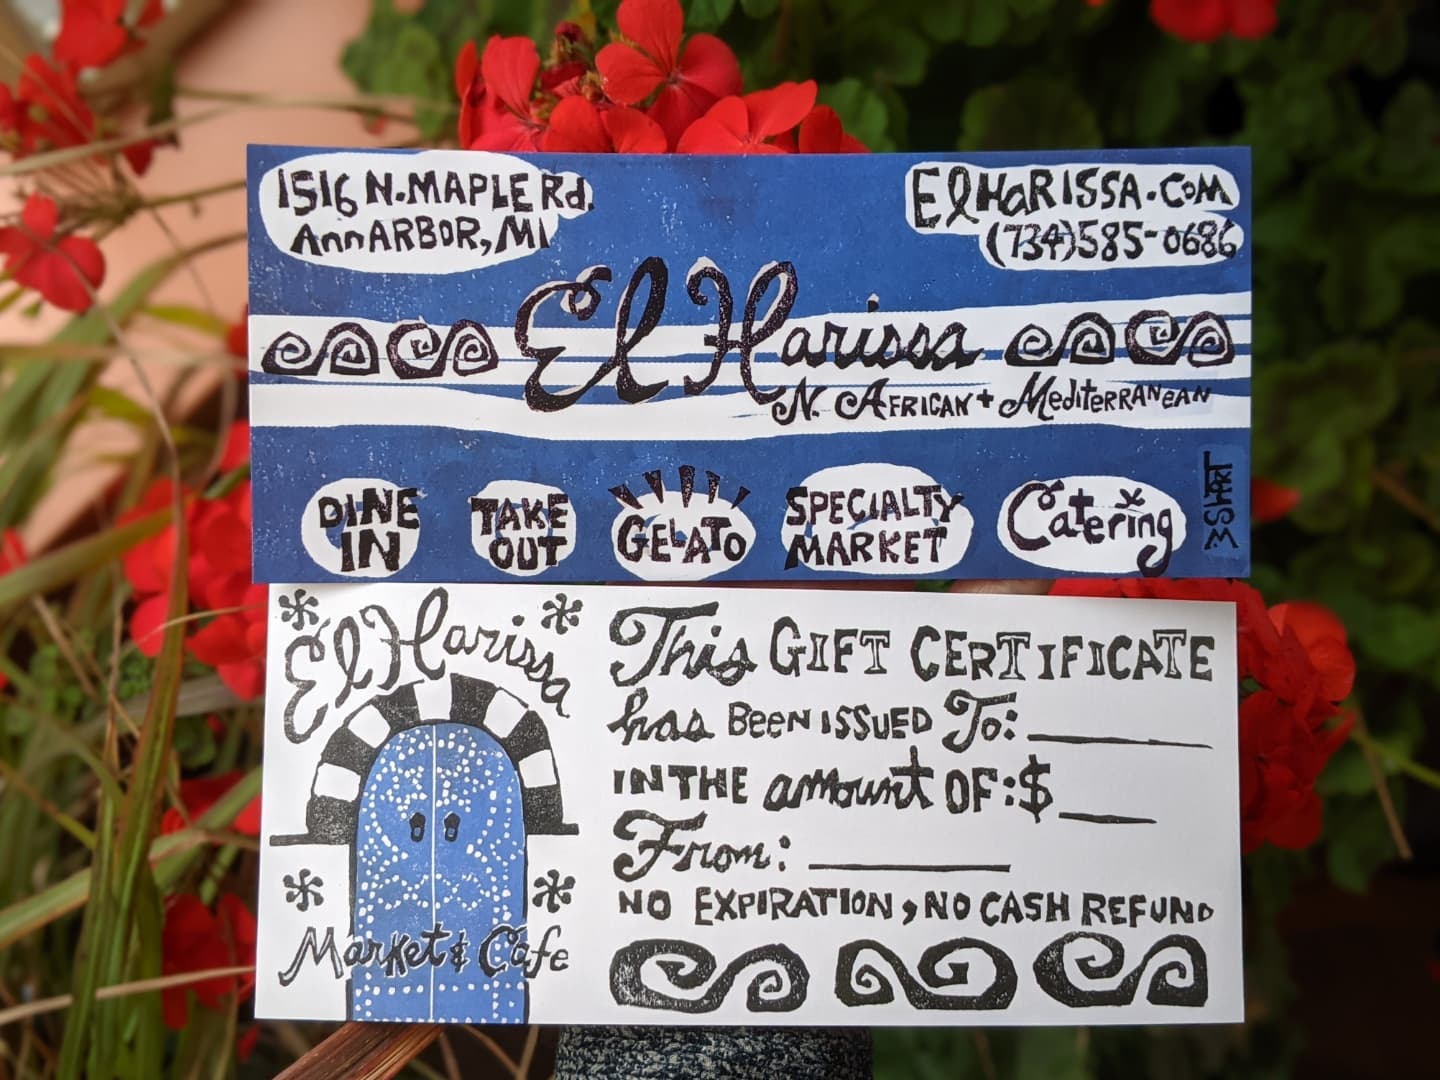 1516 N. MAPLE Rd.
Ann ARBOR, MI
ElHaRISSA.COM
(734)585-0686
El Harissa
N. AFRICAN + MediTERRANeAN
DINE
IN
TAKE
OUT
GELATO
SPECIALTY
MARKET
Catering
El Harissa
Market & Cafe
This GIFT CERTIFICATE
has BEEN ISSUED To:
IN THE amount OF: $
From:
NO EXPIRATION, NO CASH REFUND